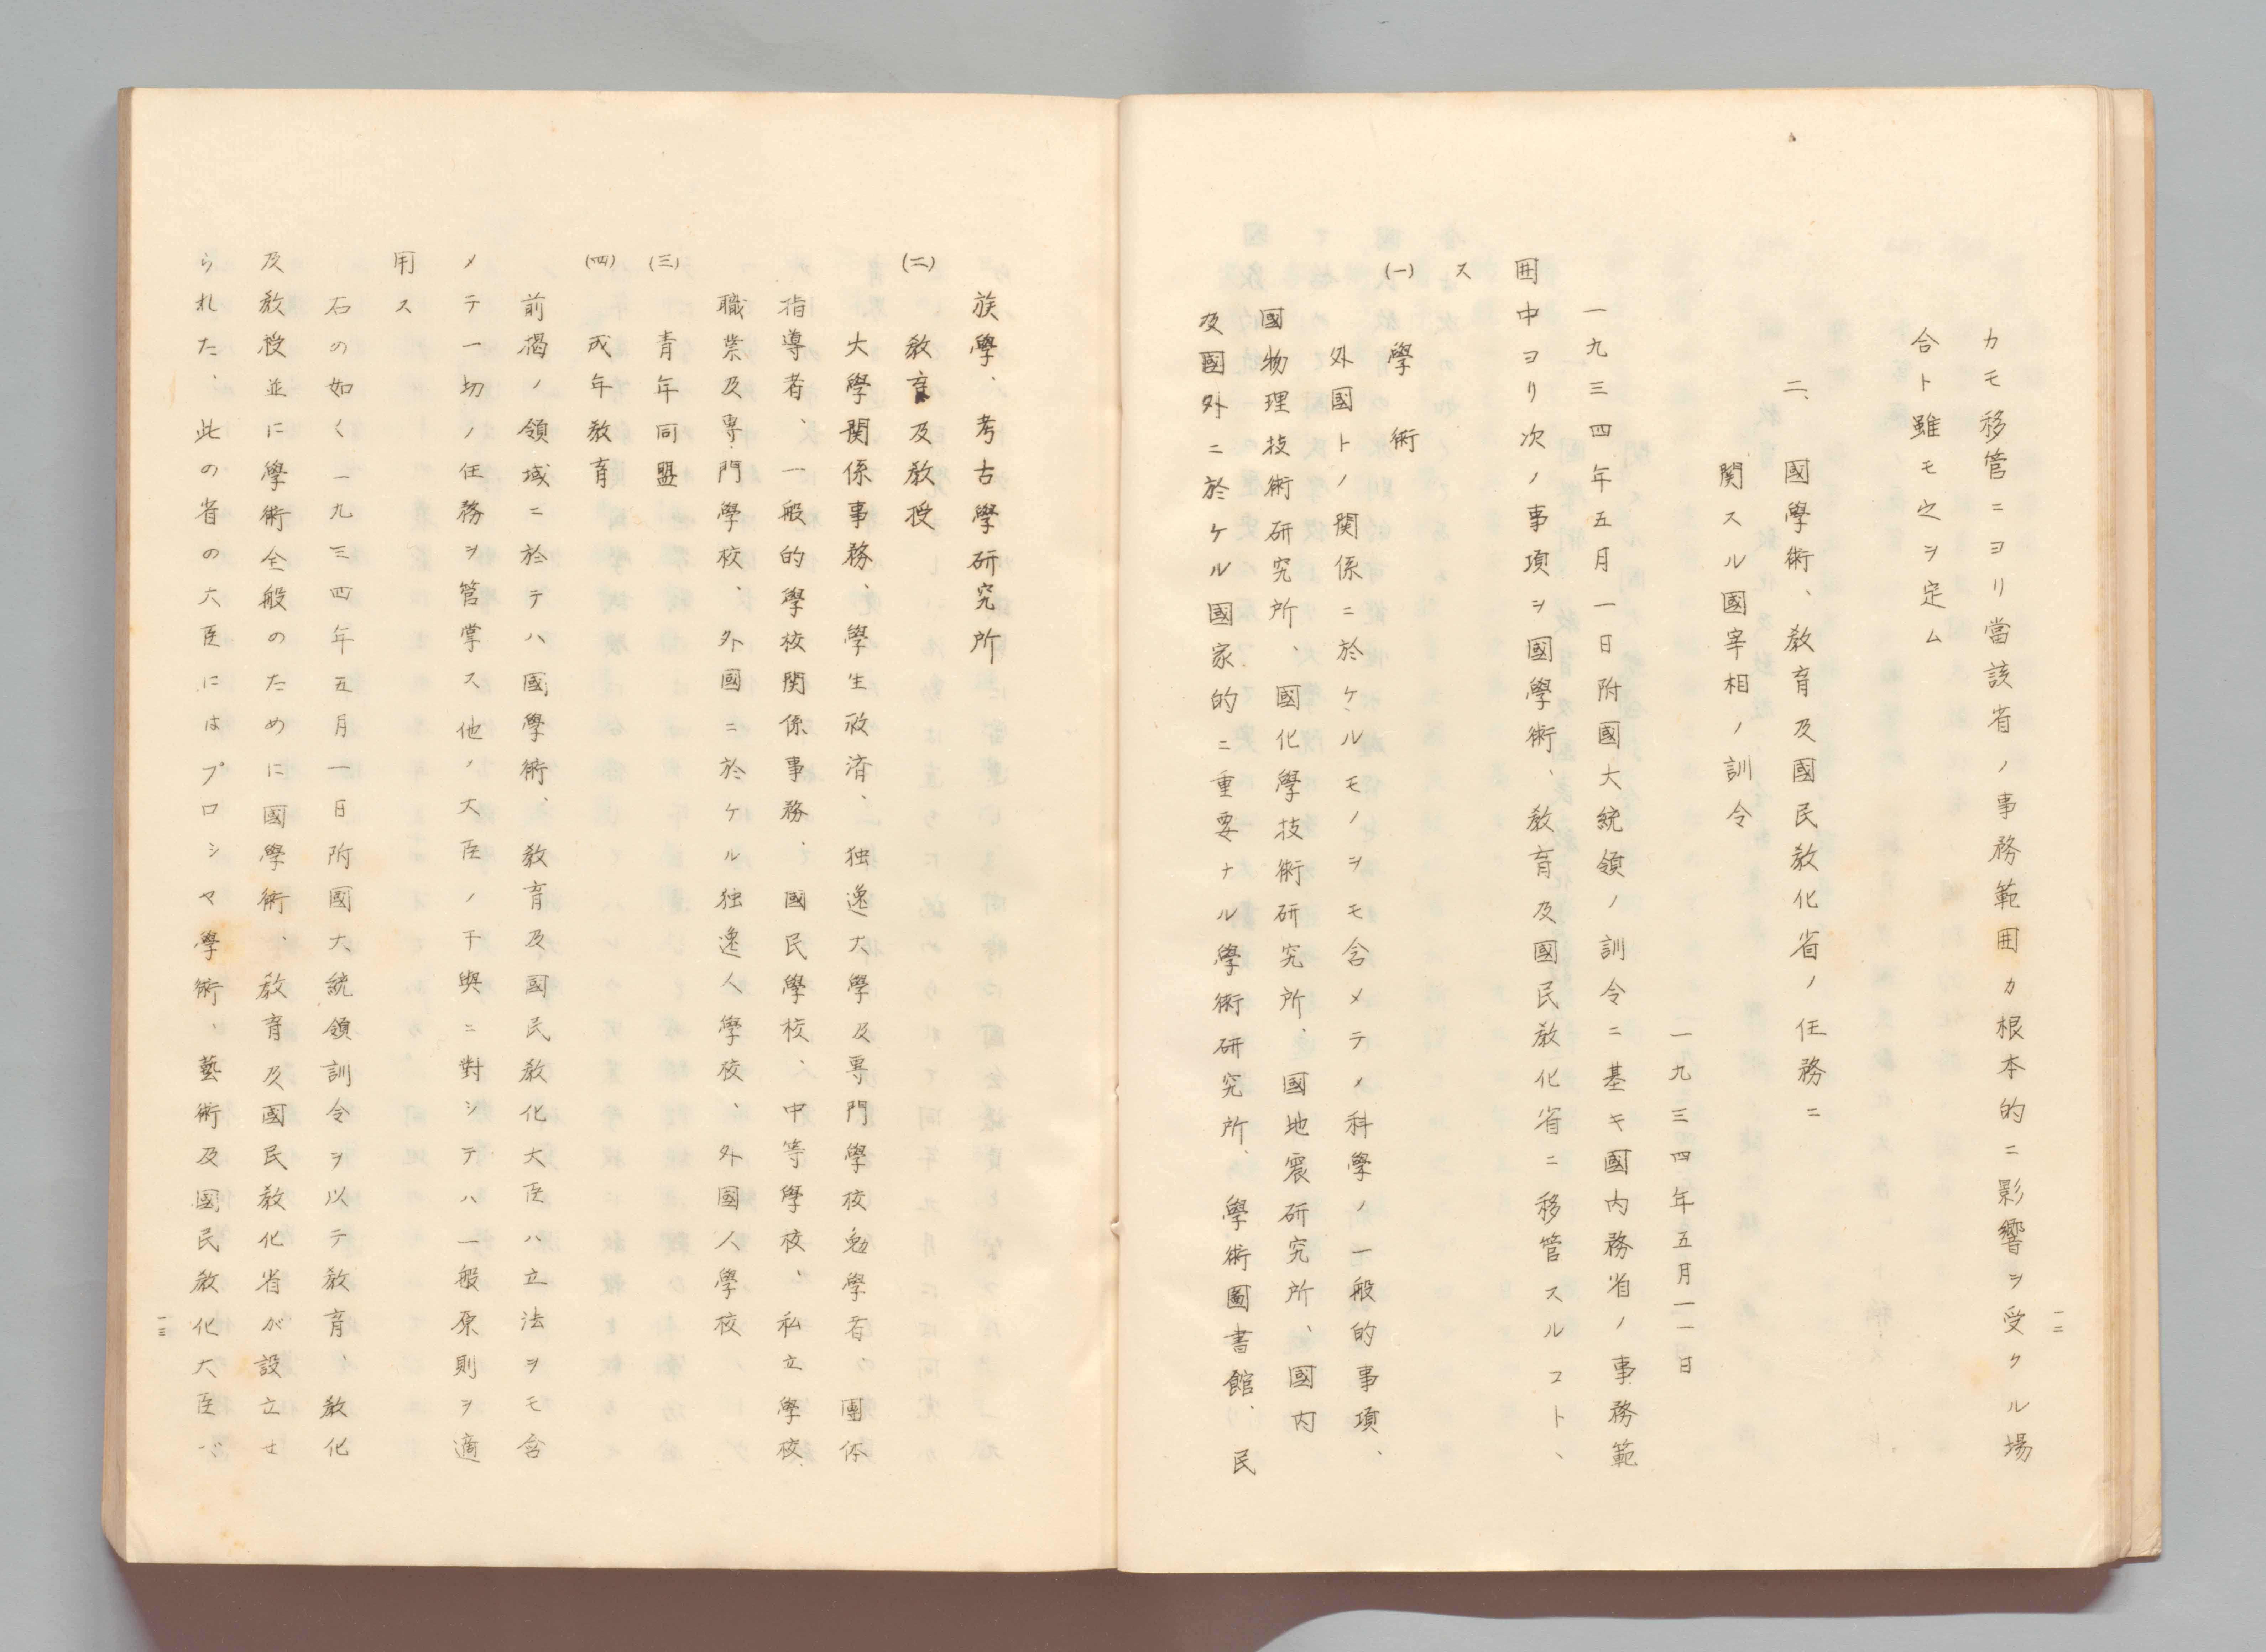 カモ移管ニヨリ當該省ノ事務範囲カ根本的ニ影響ヲ受クル場
合ト雖モ之ヲ定ム
二、國學術、教育及國民教化省ノ任務ニ
関スル國宰相ノ訓令
一九三四年五月一一日
一九三四年五月一日附國大統領ノ訓令ニ基キ國内務省ノ事務範
囲中ヨリ次ノ事項ヲ國學術、教育及國民教化省ニ移管スルコト、
ス
(一) 學術
外國トノ関係ニ於ケルモノヲモ含メテノ科學ノ一般的事項、
國物理技術研究所、國化學技術研究所、國地震研究所、國内
及國外ニ於ケル國家的ニ重要ナル學術研究所、學術圖書館、民
一二
族學、考古學研究所
(二) 教育及教授
大學関係事務、學生救済、独逸大學及專門學校勉學者、團体
指導者、一般的學校関係事務、國民學校、中等學校、私立學校
職業及專門學校、外國ニ於ケル独逸人學校、外國人學校
(三) 青年同盟
(四) 成年教育
前掲ノ領域ニ於テハ國學術、教育及國民教化大臣ハ立法ヲモ含
メテ一切ノ任務ヲ管掌ス他ノ大臣ノ干與ニ對シテハ一般原則ヲ適
用ス
右の如く一九三四年五月一日附國大統領訓令ヲ以テ教育、教化
及教授並に學術全般のために國學術、教育及國民教化省が設立せ
られた、此の省の大臣にはプロシヤ學術、藝術及國民教化大臣ベ
一三